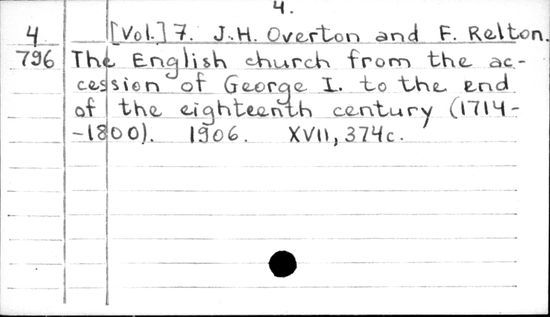 4.
4 [Vol.] 7. J.H. Overton and F. Relton.
796 The English church from the ac-
cession of George I. to the end
of the eighteenth century (1714-
-1800). 1906. XVII, 374c.